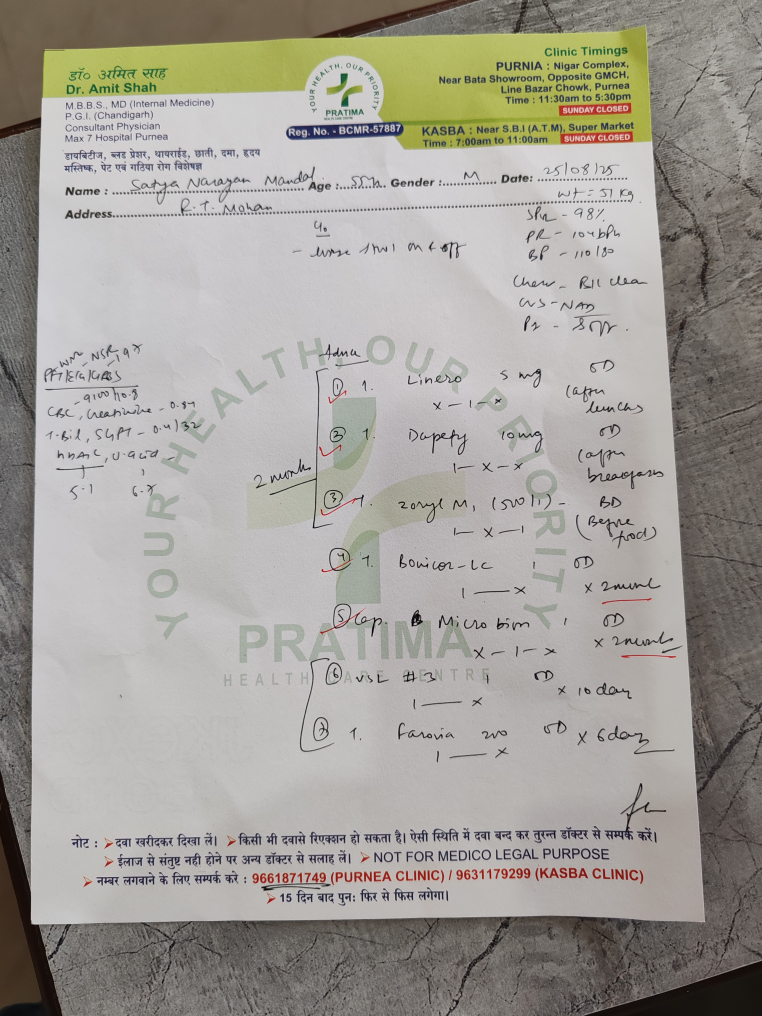 डॉ० अमित साह
Dr. Amit Shah
M.B.B.S., MD (Internal Medicine)
P.G.I. (Chandigarh)
Consultant Physician
Max 7 Hospital Purnea
डायबिटीज, ब्लड प्रेशर, थायराईड, छाती, दमा, हृदय
मस्तिष्क, पेट एवं गठिया रोग विशेषज्ञ
YOUR HEALTH, OUR PRIORITY
PRATIMA
HEALTH CARE CENTRE
Reg. No. - BCMR-57887
Clinic Timings
PURNIA : Nigar Complex,
Near Bata Showroom, Opposite GMCH,
Line Bazar Chowk, Purnea
Time : 11:30am to 5:30pm
SUNDAY CLOSED
KASBA : Near S.B.I (A.T.M), Super Market
Time : 7:00am to 11:00am SUNDAY CLOSED
Name : Satya Narayan Mandal Age : 55 Gender : M Date: 25/08/25
Wt = 51 kg
Address R.T. Mohan
SPO2 - 98%
PR - 104 bpm
BP - 110/80
c/o
- loose stool on & off
Chest - B/L clear
CVS - NAD
P/A - Soft
NSR
- 9100/10.8
CBC, Creatinine - 0.84
T.Bil, SGPT - 0.4/32
HbA1C, U.acid -
5.1 6.7
Advice
2 months
① T. Linero 5 mg OD
x - 1 - x (after lunch)
② T. Dapefy 10mg OD
1 - x - x (after breakfast)
③ T. Zoryl M1 (500/1) - BD
1 - x - 1 (Before food)
④ T. Bonicor-LC 1 OD
1 — x x 2 month
⑤ Cap. Microbion 1 OD
x - 1 - x x 2 months
⑥ VSL #3 1 OD
1 — x x 10 day
⑦ T. Farovia 200 OD x 6 day
1 — x
YOUR HEALTH, OUR PRIORITY
PRATIMA
HEALTH CARE CENTRE
नोट : ➤ दवा खरीदकर दिखा लें। ➤ किसी भी दवासे रिएक्शन हो सकता है। ऐसी स्थिति में दवा बन्द कर तुरन्त डॉक्टर से सम्पर्क करें।
➤ ईलाज से संतुष्ट नही होने पर अन्य डॉक्टर से सलाह लें। ➤ NOT FOR MEDICO LEGAL PURPOSE
➤ नम्बर लगवाने के लिए सम्पर्क करे : 9661871749 (PURNEA CLINIC) / 9631179299 (KASBA CLINIC)
➤ 15 दिन बाद पुन: फिर से फिस लगेगा।